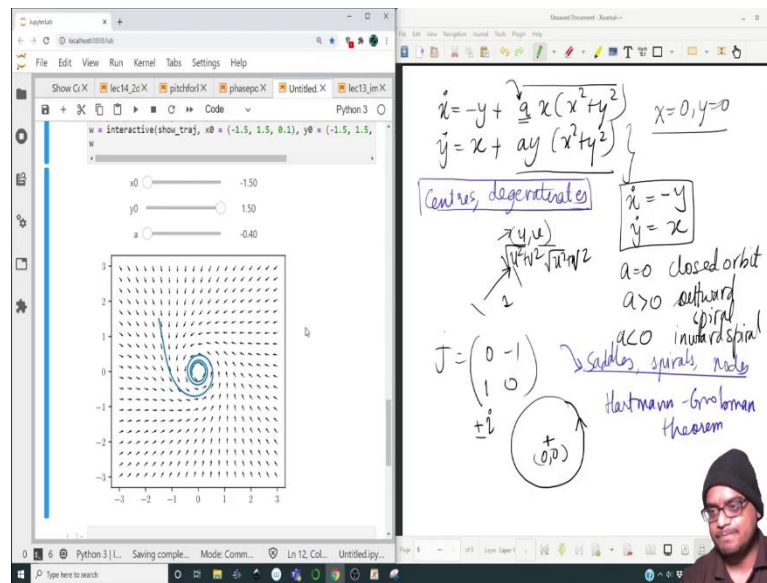 JupyterLab
localhost:8888/lab
File Edit View Run Kernel Tabs Settings Help
Show Co lec14_2d pitchfork phasepo Untitled. lec13_im
Code Python 3
w = interactive(show_traj, x0 = (-1.5, 1.5, 0.1), y0 = (-1.5, 1.5,
w
x0 -1.50
y0 1.50
a -0.40
3
2
1
0
−1
−2
−3
−3 −2 −1 0 1 2 3
0 6 Python 3 | I... Saving comple... Mode: Comm... Ln 12, Col... Untitled.ipy...
Type here to search
Unsaved Document - Xournal++
File Edit View Navigation Journal Tools Plugin Help
ẋ = -y + a x (x²+y²)
ẏ = x + ay (x²+y²)
x=0, y=0
Centres, degenerates
ẋ = -y
ẏ = x
a=0 closed orbit
a>0 outward
spiral
a<0 inward spiral
1
J = (0 -1
1 0)
±i
(0,0)
saddles, spirals, nodes
Hartmann-Grobman
theorem
Page 6 of 6 Layer Layer 1